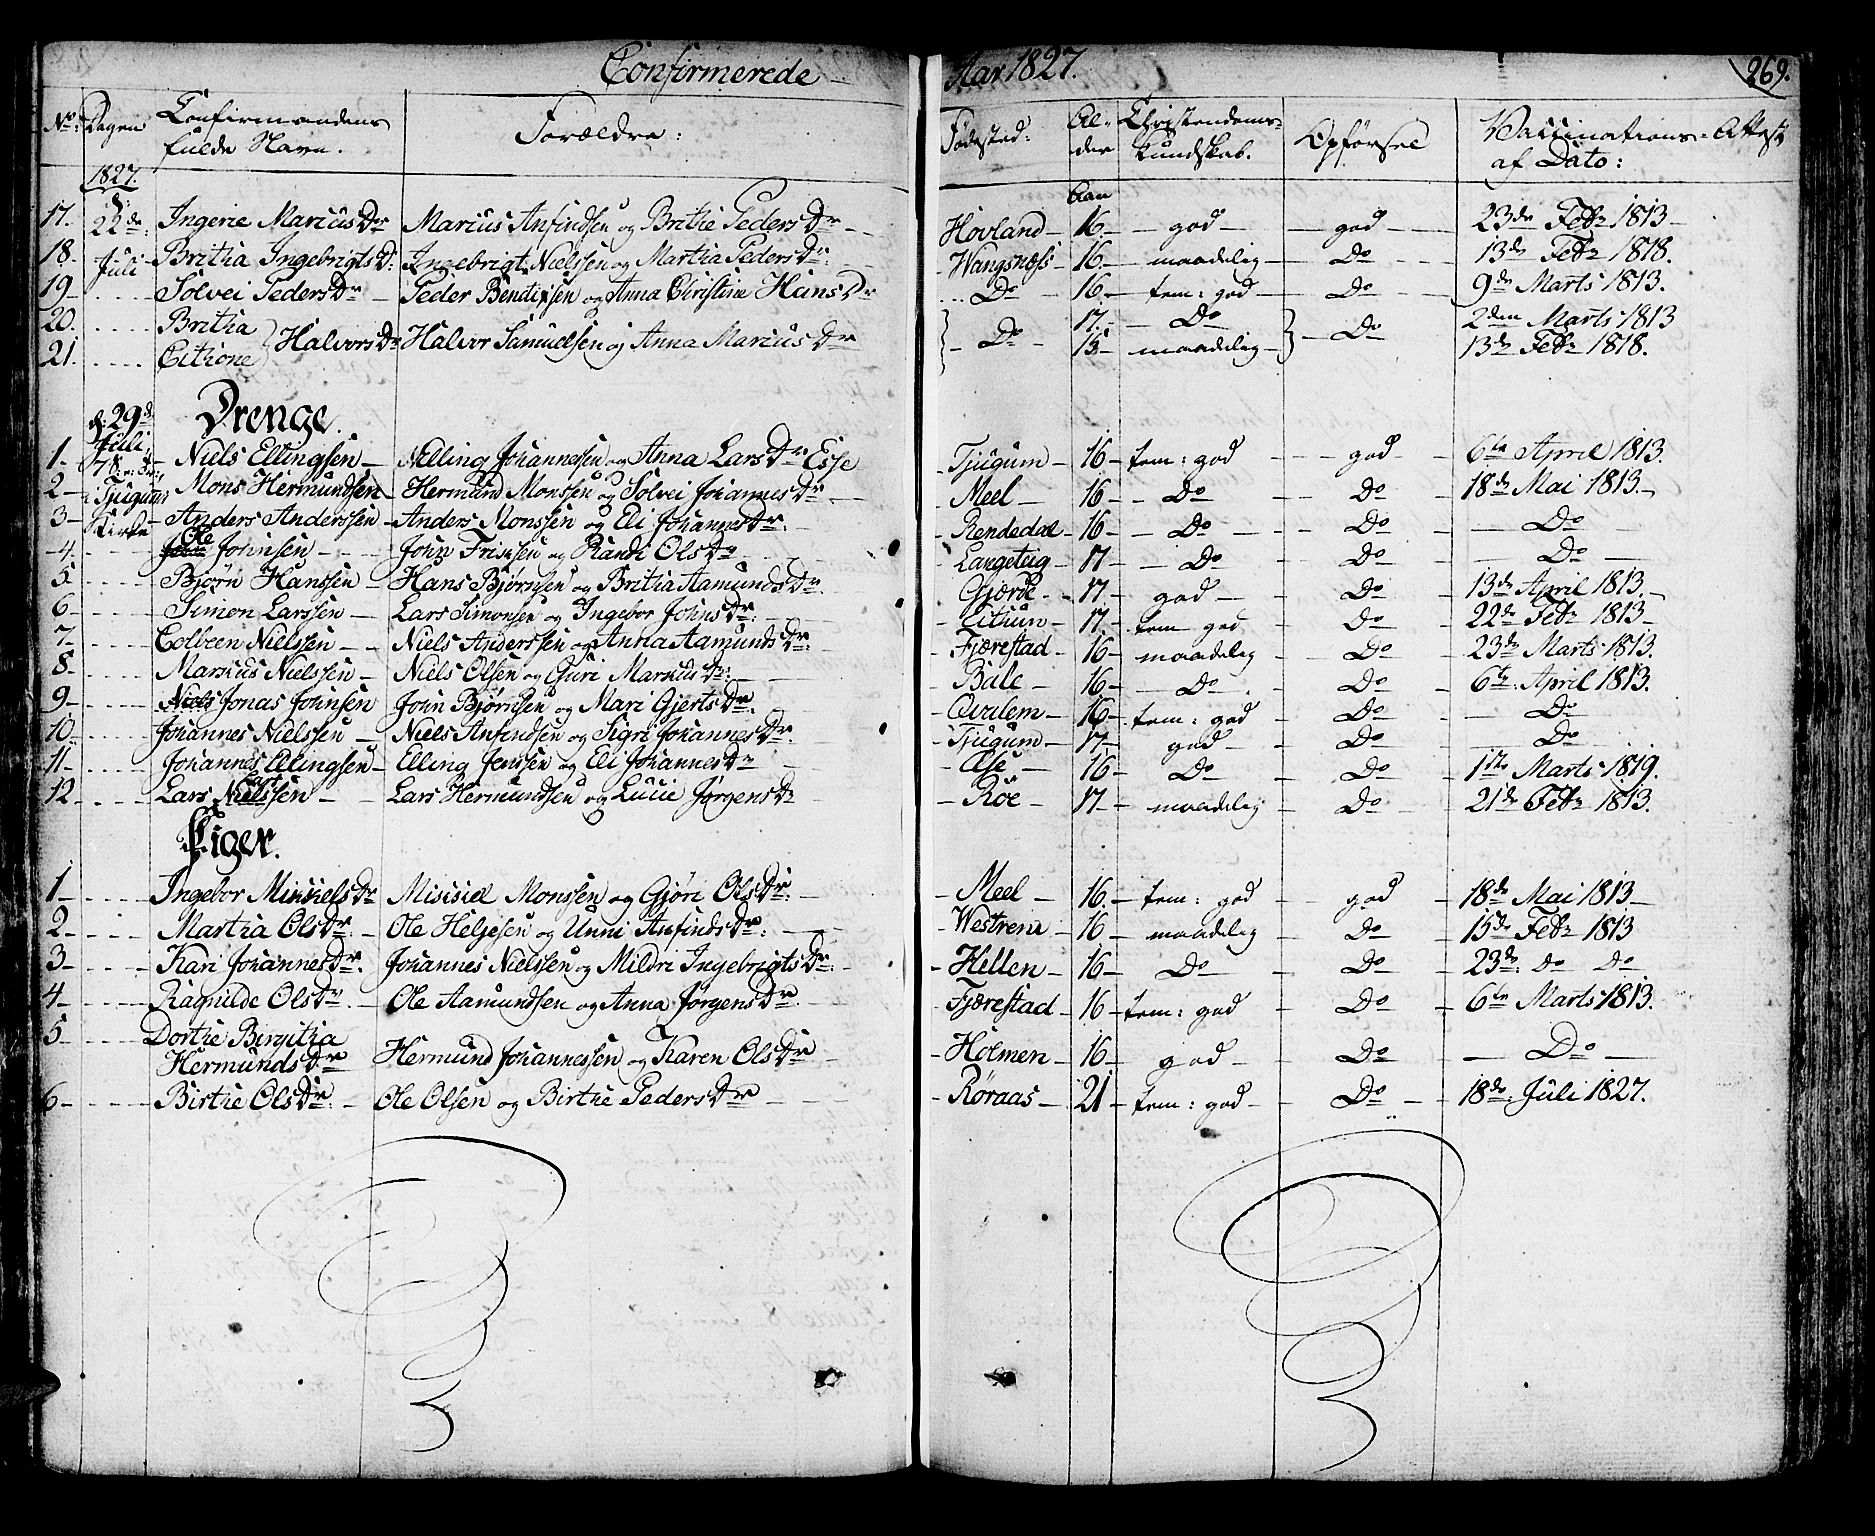 Confirmerede Aar 1827. 269.
No: Dagen Confirmandens fulde Navn. Forældre: Fødested: Alder Christendoms-Kundskab. Opførsel Vaccinations-Attest af Dato:
1827. Aar
17. d: 22de Ingerie Marcus Dr Marcus Anfindsen og Brithe Peders Dr Hovland 16 god god 23de Febr 1813
18. Juli Brithe Ingebrigts D: Ingebrigt Nielssen og Martha Peders Dr: Wangsnæss 16 maadelig Do 13de Febr 1818.
19 Sølvei Peders Dr Peder Bendixsen og Anna Christine Hans Dr Do 16 tem: god Do 9de Marts 1813.
20. Britha } Halvors Dr Halvor Samuelsen og Anna Marcus Dr } Do 17. Do } Do 2den Marts 1813
21. Citione 15 maadelig 13de Febr 1818.
Drenge.
d: 29de
1 Juli Niels Ellingsen Nelling Johannessen og Anna Lars Dr Esse Tjugum 16 tem: god god 6te April 1813.
2 i Tjugum Mons Hermundsen Hermund Monssen og Solvei Johannes Dr Meel 16 Do Do 18de Mai 1813.
3 Kirke Anders Anderssen Anders Monssen og Eli Johannes Dr: Rendedal 16 Do Do Do
4. Ole Johnsen John Friksen og Randi Ols Dr Langeteig 17 Do Do Do
5 Bjørn Hanssen Hans Bjørnsen og Britha Aamunds Dr Gjærde 17 god Do 13de April 1813.
6 Simon Larssen Lars Simonsen og Ingebor Johns Dr: Eitrun 17 tem god Do 22de Febr 1813
7 Colbeen Nielssen Niels Anderssen og Anna Aamunds Dr: Fjærestad 16 maadelig Do 23de Marts 1813.
8 Marcus Nielssen Niels Olsen og Guri Marcus Dr: Bale 16 Do Do 6te April 1813.
9 Niels Jonas Johnsen John Bjørnsen og Mari Gjerts Dr: Qvalem 16 tem: god Do Do
10 Johannes Nielssen Niels Anfindsen og Sigri Johannes Dr: Tjugum 17 god Do Do
11 Johannes Ellingsen Elling Jenssen og Eli Johannes Dr Ese 16 Do Do 1ste Marts 1819.
12 Lars Nielssen Lars Lars Hermundsen og Lucie Jørgens Dr Røe 17 maadelig Do 21de Febr 1813.
Piger.
1 Ingebor Mikkels Dr Mikkel Monssen og Gjøri Ols Dr: Meel 16 tem: god god 18de Mai 1813
2 Martha Ols Dr: Ole Heljesen og Unni Anfinds Dr: Westrem 16 maadelig Do 15de Febr 1813
3 Kari Johannes Dr. Johannes Nielssen og Mildri Ingebrigts Dr: Hellen 16 Do Do 23de: do do
4 Ragnilde Ols Dr Ole Aamundsen og Anna Jørgens Dr. Fjærestad 16 tem: god Do 6te Marts 1813.
5 Dorthe Birgitha
Hermunds Dr Hermund Johannessen og Karen Ols Dr Holmen 16 god Do Do
6 Birthe Ols Dr: Ole Olsen og Birthe Peders Dr Røraas 21 tem: god Do 18de: Juli 1827.